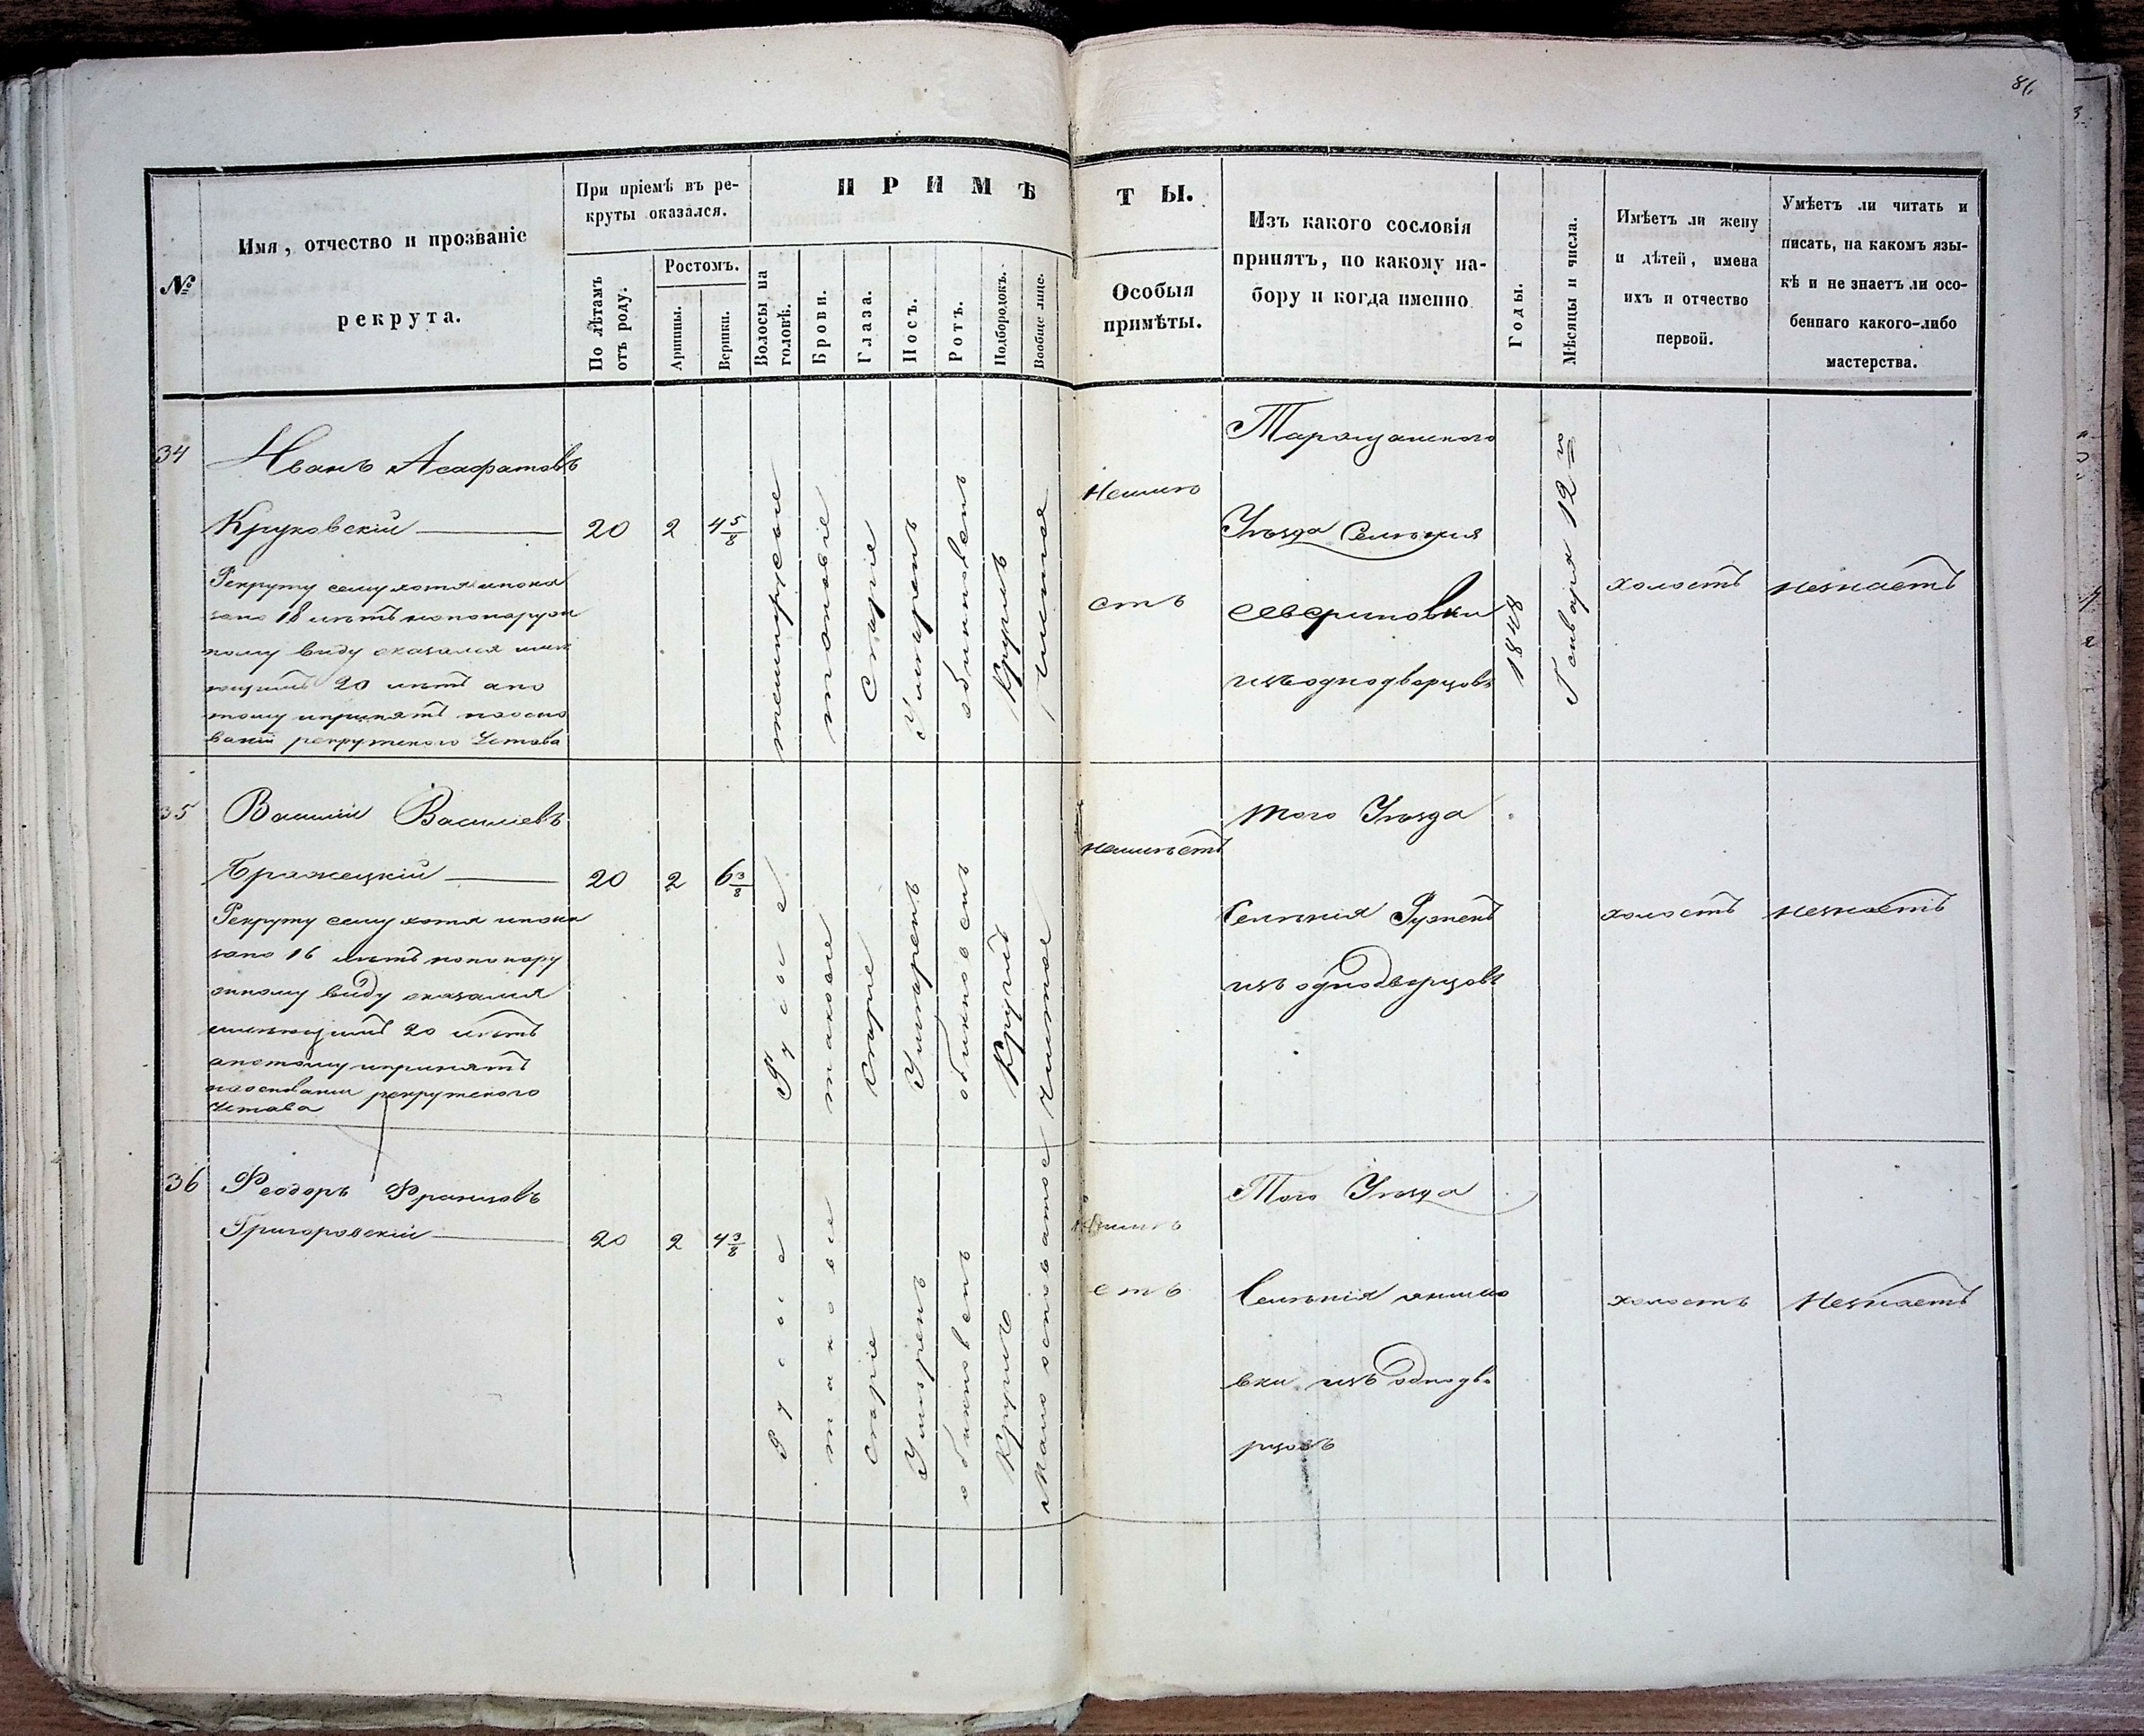 86
№
Имя, отчество и прозваніе
рекрута.
При пріемѣ въ ре-
круты оказался.
По лѣтамъ
отъ роду.
Ростомъ.
Аршины.
Вершки.
ПРИМѢ
ТЫ.
Волосы на
головѣ.
Брови.
Глаза.
Носъ.
Ротъ.
Подбородокъ.
Вообще лице.
Особыя
примѣты.
Изъ какого сословія
принятъ, по какому на-
бору и когда именно
Годы.
Мѣсяцы и числа.
Имѣетъ ли жену
и дѣтей, имена
ихъ и отчество
первой.
Умѣетъ ли читать и
писать, на какомъ язы-
кѣ и не знаетъ ли осо-
беннаго какого-либо
мастерства.
34
Иванъ Асафатовъ
Круковскій
Рекруту сему хотя и пока
зано 18 лѣтъ но по наруж
ному виду оказался имѣ
ющимъ 20 лѣтъ а по
тому и принятъ на осно
ваніи рекрутского Устава
20
2
4 5/8
темнорусые
таковые
Сѣрые
Умѣренъ
обыкновенъ
Круглъ
Чистое
Неимѣ
етъ
Таращанского
Уѣзда Селенія
Севериновки
изъ однодворцовъ
1848
Генваря 12го
холостъ
незнаетъ
35
Василій Василіевъ
Бражецкій
Рекруту сему хотя и пока
зано 16 лѣтъ но по нару
жному виду оказался
имѣющимъ 20 лѣтъ
а потому и принятъ
на основаніи рекрутского
Устава
20
2
6 3/8
Русые
таковые
Сѣрые
Умѣренъ
обыкновенъ
Круглъ
Чистое
неимѣетъ
того Уѣзда
Селенія
изъ однодворцовъ
холостъ
незнаетъ
36
Феодоръ Францовъ
Григоровскій
20
2
4 3/8
Русые
таковые
Сѣрые
Умѣренъ
обыкновенъ
Круглъ
Мало осповатое
неимѣ
етъ
Того Уѣзда
Селенія
вки изъ однодво
рцовъ
холостъ
Незнаетъ